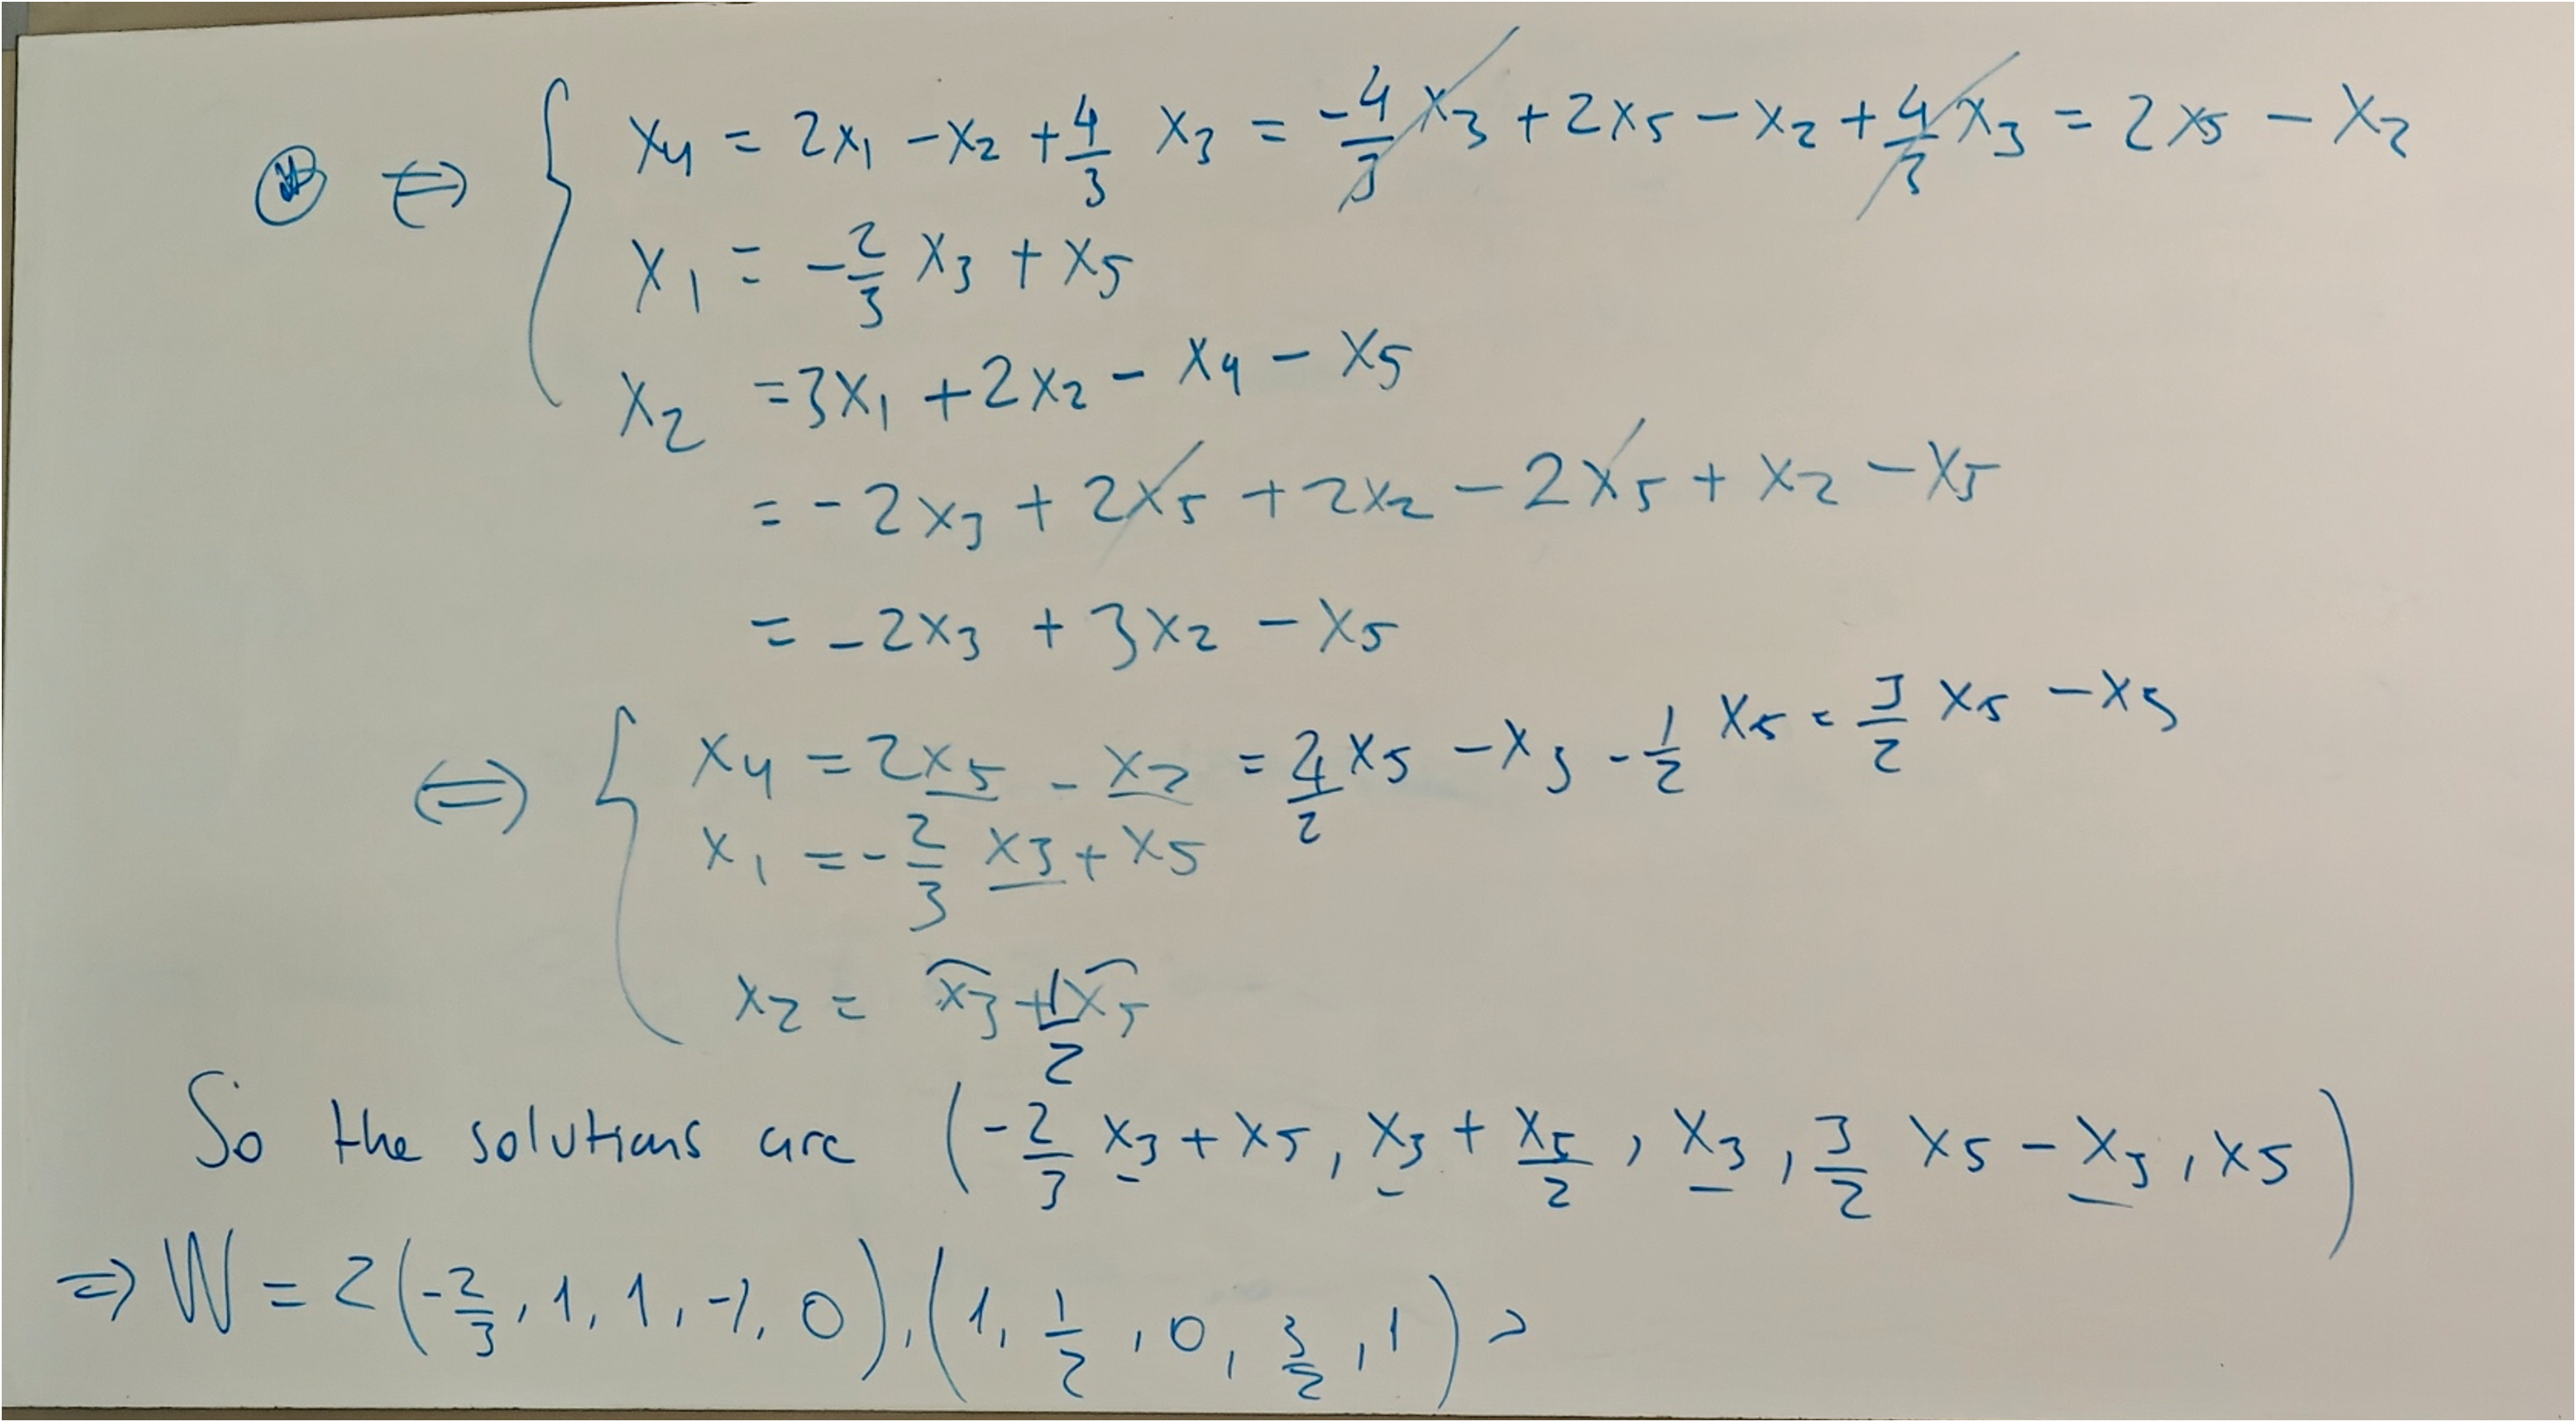 ⊛ ⇔ { x₄ = 2x₁ - x₂ + 4/3 x₃ = -4/3 x₃ + 2x₅ - x₂ + 4/3 x₃ = 2x₅ - x₂
x₁ = -2/3 x₃ + x₅
x₂ = 3x₁ + 2x₂ - x₄ - x₅
= -2x₃ + 2x₅ + 2x₂ - 2x₅ + x₂ - x₅
= -2x₃ + 3x₂ - x₅
⇔ { x₄ = 2x₅ - x₂ = 4/2 x₅ - x₃ - 1/2 x₅ = 3/2 x₅ - x₃
x₁ = -2/3 x₃ + x₅
x₂ = x₃ + 1/2 x₅
So the solutions are (-2/3 x₃ + x₅, x₃ + x₅/2, x₃, 3/2 x₅ - x₃, x₅)
⇒ W = <(-2/3, 1, 1, -1, 0), (1, 1/2, 0, 3/2, 1)>